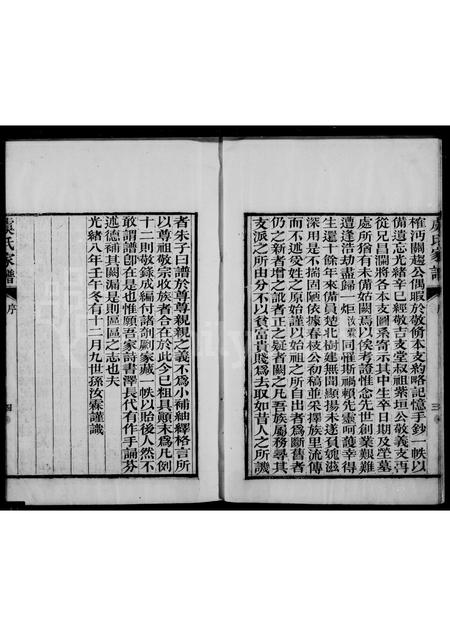 權河關趨公偶暇於敬脩本支約略記憶手鈔一帙以
備遺忘光緒辛巳經敬吉支堂叔祖葉垣公敬義支再
從兄昌瀾將各本支圖系寄示其中生卒日期及塋墓
處所猶有未備姑闕焉以俟考證惟念先世創業艱難
遭逢浩劫盡歸一炬汝霖同罹斯禍賴先靈呵護幸得
生還十餘年來備員楚北樹建無聞顯揚未遂負媿滋
深用是不揣固陋依據春枝公初稿並采擇族里流傳
而不述愛姓之原始謹以始祖之所自出者爲斷舊者
仍之新者增之訛者正之疑者闕之凡吾族屬務尋其
支派之所由分不以貧富貴賤爲去取如昔人之所譏
者朱子曰譜於尊尊親親之義不爲小補紬繹格言所
以尊祖敬宗收族者合在於此爰具顛末爲凡例
十二則敬錄成編付諸剞劂家藏一帙以貽後人然不
敢謂譜卽在是也惟願吾家詩書澤長代有作手誦芬
述德補其闕漏是則區區之志也夫
光緒八年壬午冬有十一月九世孫汝霖謹識
虞氏家譜
序
三
虞氏家譜
序
四